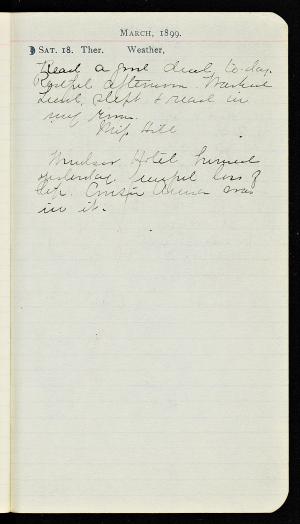 MARCH, 1899.
SAT. 18. Ther. Weather,
Read a good deal to-day.
afternoon. Washed
Lunch, slept & read in
my room.
Miss Hill
Windsor Hotel burned
yesterday. awful loss of
life. Cousin was
in it.